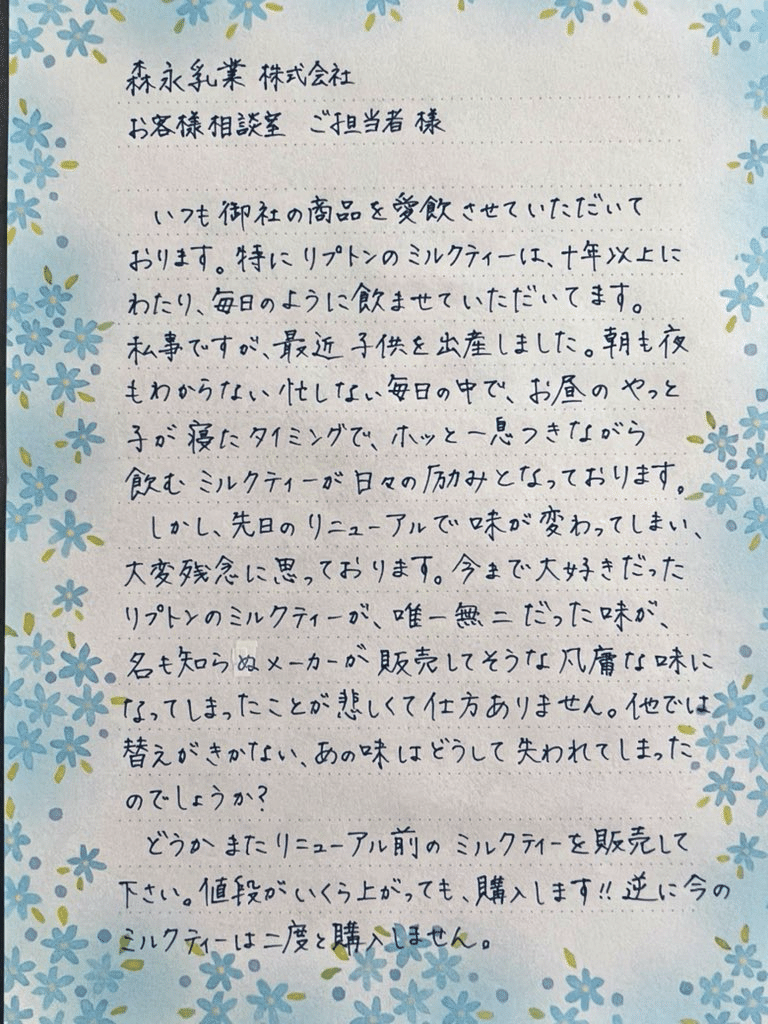 森永乳業 株式会社
お客様相談室 ご担当者様
いつも御社の商品を愛飲させていただいて
おります。特にリプトンのミルクティーは、十年以上に
わたり、毎日のように飲ませていただいてます。
私事ですが、最近子供を出産しました。朝も夜
もわからない忙しない毎日の中で、お昼のやっと
子が寝たタイミングで、ホッと一息つきながら
飲むミルクティーが日々の励みとなっております。
しかし、先日のリニューアルで味が変わってしまい、
大変残念に思っております。今まで大好きだった
リプトンのミルクティーが、唯一無二だった味が、
名も知らぬメーカーが販売してそうな凡庸な味に
なってしまったことが悲しくて仕方ありません。他では
替えがきかない、あの味はどうして失われてしまった
のでしょうか?
どうかまたリニューアル前のミルクティーを販売して
下さい。値段がいくら上がっても、購入します!!逆に今の
ミルクティーは二度と購入しません。